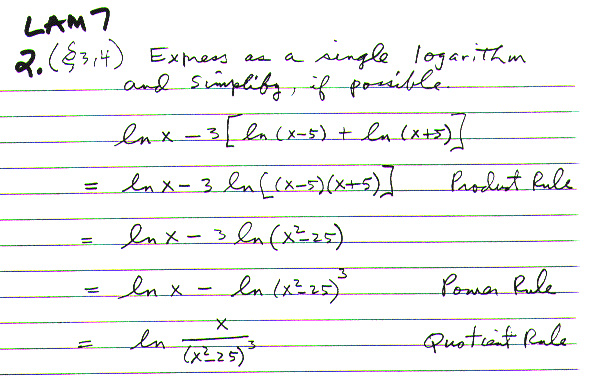 LAM 7
2. (§3,4) Express as a single logarithm
and simplify, if possible.
ln x - 3[ln (x-5) + ln (x+5)]
= ln x - 3 ln[(x-5)(x+5)] Product Rule
= ln x - 3 ln (x²-25)
= ln x - ln (x²-25)³ Power Rule
= ln x/(x²-25)³ Quotient Rule